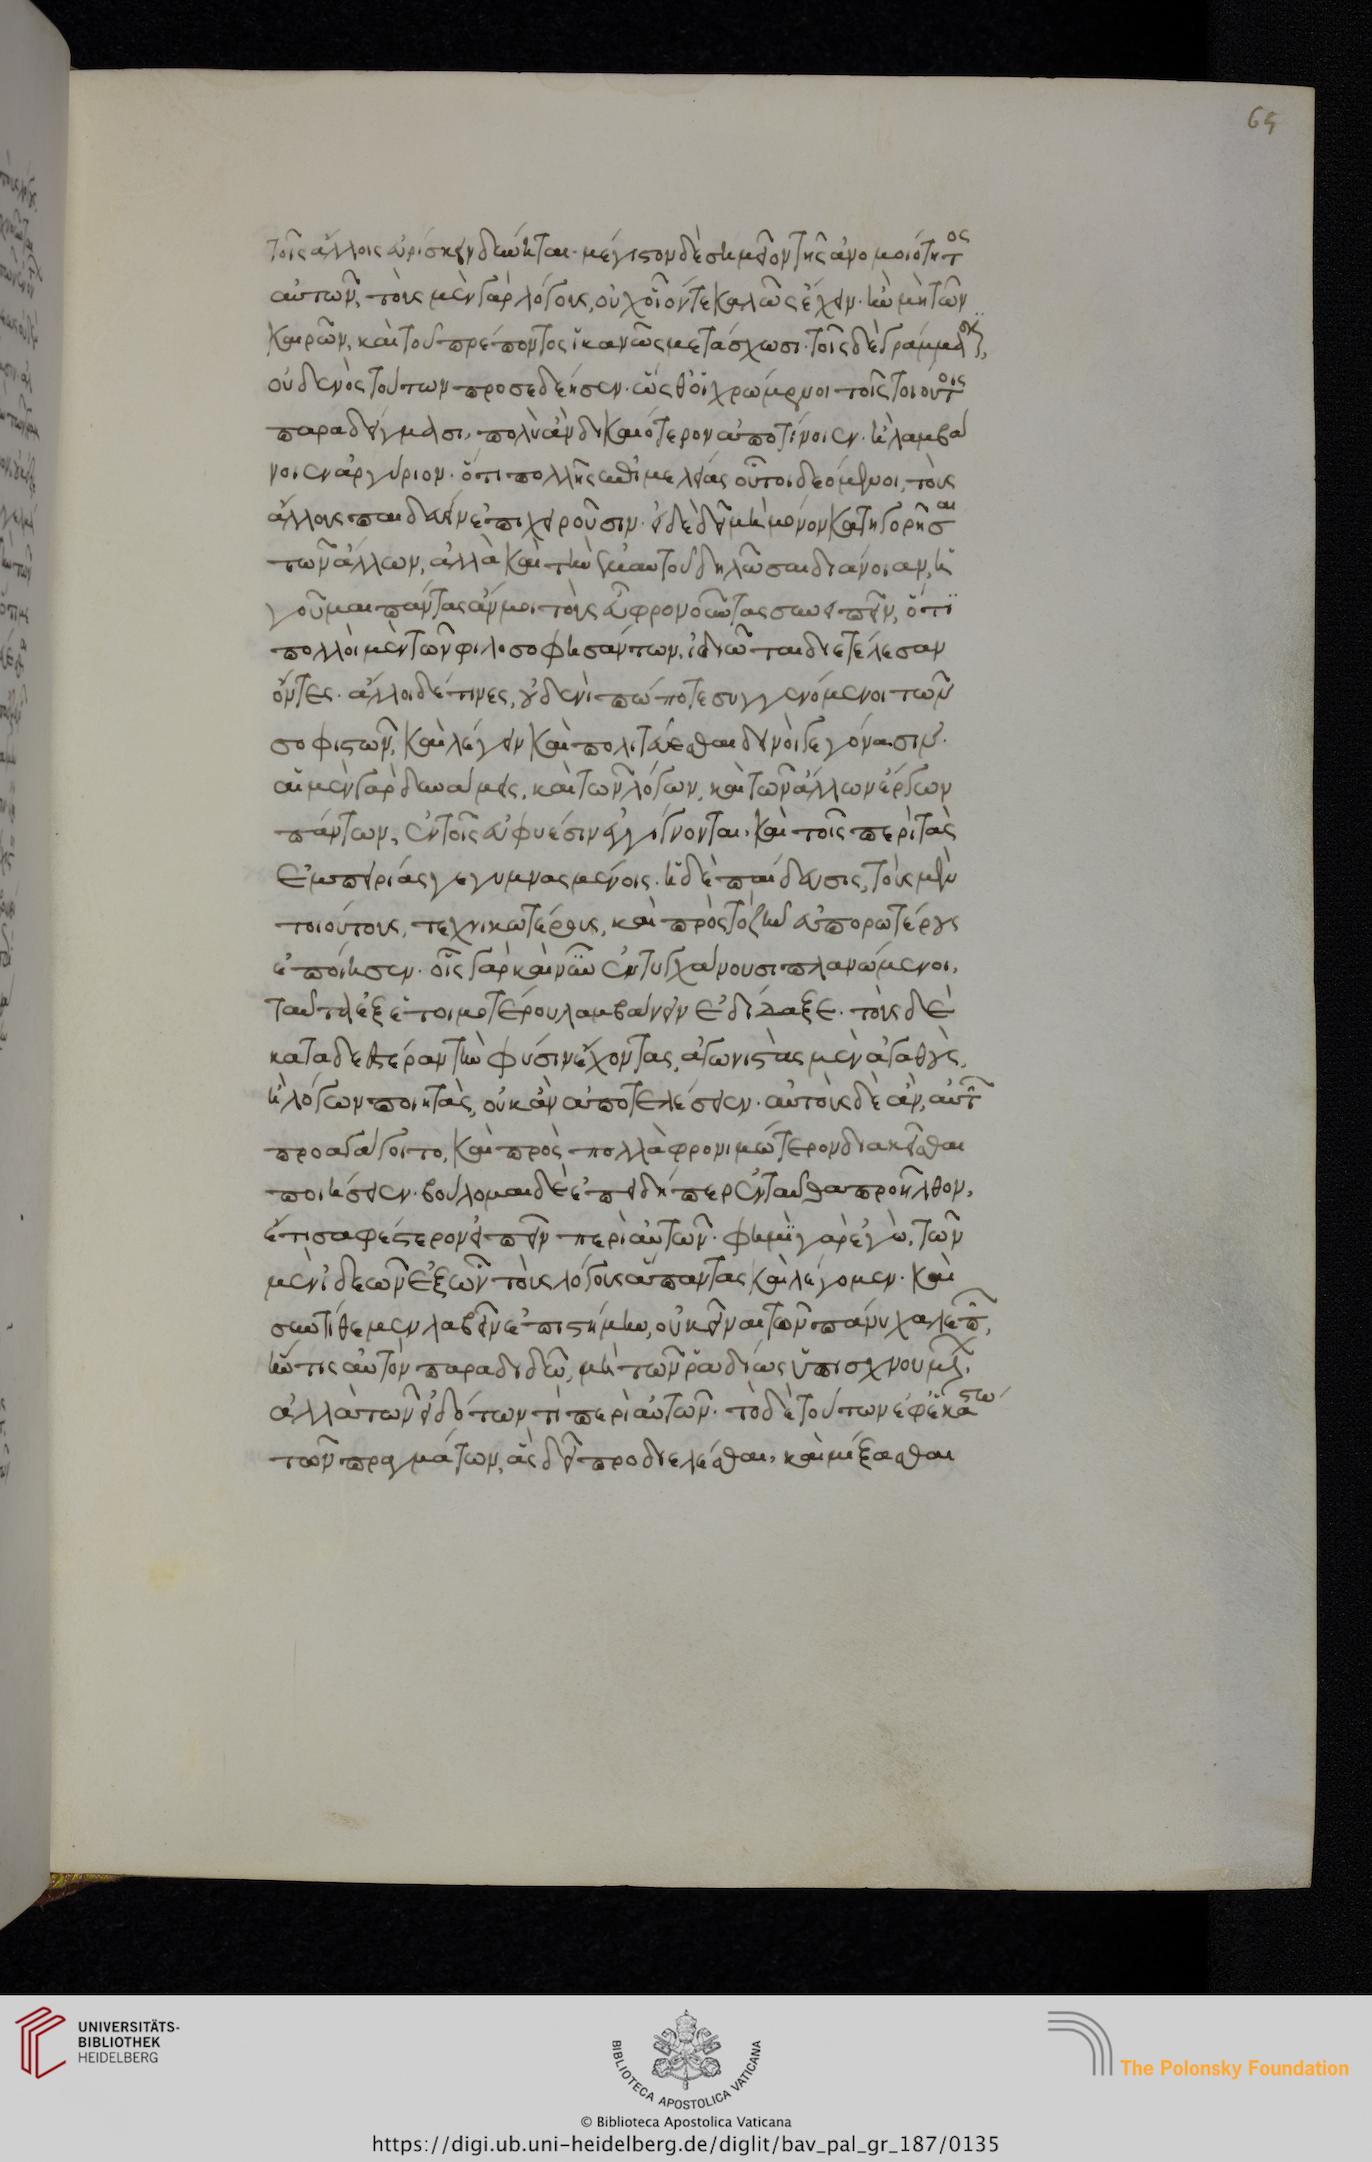 65
τοῖς ἄλλοις εὑρίσκειν δύνηται. μέγιστον δὲ σημεῖον τῆς ἀνομοιότητος
αὐτῶν, τοὺς μὲν γὰρ λόγους, οὐχ οἷόν τε καλῶς ἔχειν. ἢν μὴ τῶν
καιρῶν, καὶ τοῦ πρέποντος ἱκανῶς μετάσχωσι. τοῖς δὲ γράμμασιν,
οὐδενὸς τούτων προσεδέησεν. ὥσθ' οἱ χρώμενοι τοῖς τοιούτοις
παραδείγμασι, πολὺ ἂν δικαιότερον ἀποτίνοιεν. ἢ λαμβά
νοιεν ἀργύριον. ὅτι πολλῆς ἐπιμελείας οὗτοι δεόμενοι, τοὺς
ἄλλους παιδεύειν ἐπιχειροῦσιν. εἰ δὲ δεῖ μὴ μόνον κατηγορῆσαι
τῶν ἄλλων, ἀλλὰ καὶ τὴν ἐμαυτοῦ δηλῶσαι διάνοιαν, ἡ
γοῦμαι πάντας ἄν μοι τοὺς εὖ φρονοῦντας συνειπεῖν, ὅτι
πολλοὶ μὲν τῶν φιλοσοφησάντων, ἰδιῶται διετέλεσαν
ὄντες. ἄλλοι δέ τινες, οὐδενὶ πώποτε συγγενόμενοι τῶν
σοφιστῶν, καὶ λέγειν καὶ πολιτεύεσθαι δεινοὶ γεγόνασιν.
αἱ μὲν γὰρ δυνάμεις, καὶ τῶν λόγων, καὶ τῶν ἄλλων ἔργων
πάντων, ἐν τοῖς εὐφυέσιν ἐγγίγνονται. καὶ τοῖς περὶ τὰς
ἐμπειρίας γεγυμνασμένοις. ἡ δὲ παίδευσις, τοὺς μὲν
τοιούτους, τεχνικωτέρους, καὶ πρὸς τὸ ζῆν εὐπορωτέρους
ἐποίησεν. οἷς γὰρ καὶ νῦν ἐντυγχάνουσι πλανώμενοι,
ταῦτ' ἐξ ἑτοιμοτέρου λαμβάνειν ἐδίδαξε. τοὺς δὲ
καταδεεστέραν τὴν φύσιν ἔχοντας, ἀγωνιστὰς μὲν ἀγαθοὺς,
ἢ λόγων ποιητὰς, οὐκ ἂν ἀποτελέσειεν. αὐτοὺς δὲ ἂν, αὑτῶν
προαγάγοιτο, καὶ πρὸς πολλὰ φρονιμώτερον διακεῖσθαι
ποιήσειεν. βούλομαι δὲ ἐπειδή περ ἐνταῦθα προῆλθον,
ἔτι σαφέστερον εἰπεῖν περὶ αὐτῶν. φημὶ γὰρ ἐγὼ, τῶν
μὲν ἰδεῶν ἐξ ὧν τοὺς λόγους ἅπαντας καὶ λέγομεν. καὶ
συντίθεμεν λαβεῖν ἐπιστήμην, οὐκ εἶναι τῶν πάνυ χαλεπῶν,
ἤν τις αὑτὸν παραδιδῷ, μὴ τῶν ῥᾳδίως ὑπισχνουμένων,
ἀλλὰ τῶν εἰδότων τὶ περὶ αὐτῶν. τὸ δὲ τούτων ἐφ' ἑκάστῳ
τῶν πραγμάτων, ἃς δεῖ προδιελέσθαι, καὶ μίξασθαι
UNIVERSITÄTS-
BIBLIOTHEK
HEIDELBERG
BIBLIOTECA APOSTOLICA VATICANA
The Polonsky Foundation
© Biblioteca Apostolica Vaticana
https://digi.ub.uni-heidelberg.de/diglit/bav_pal_gr_187/0135